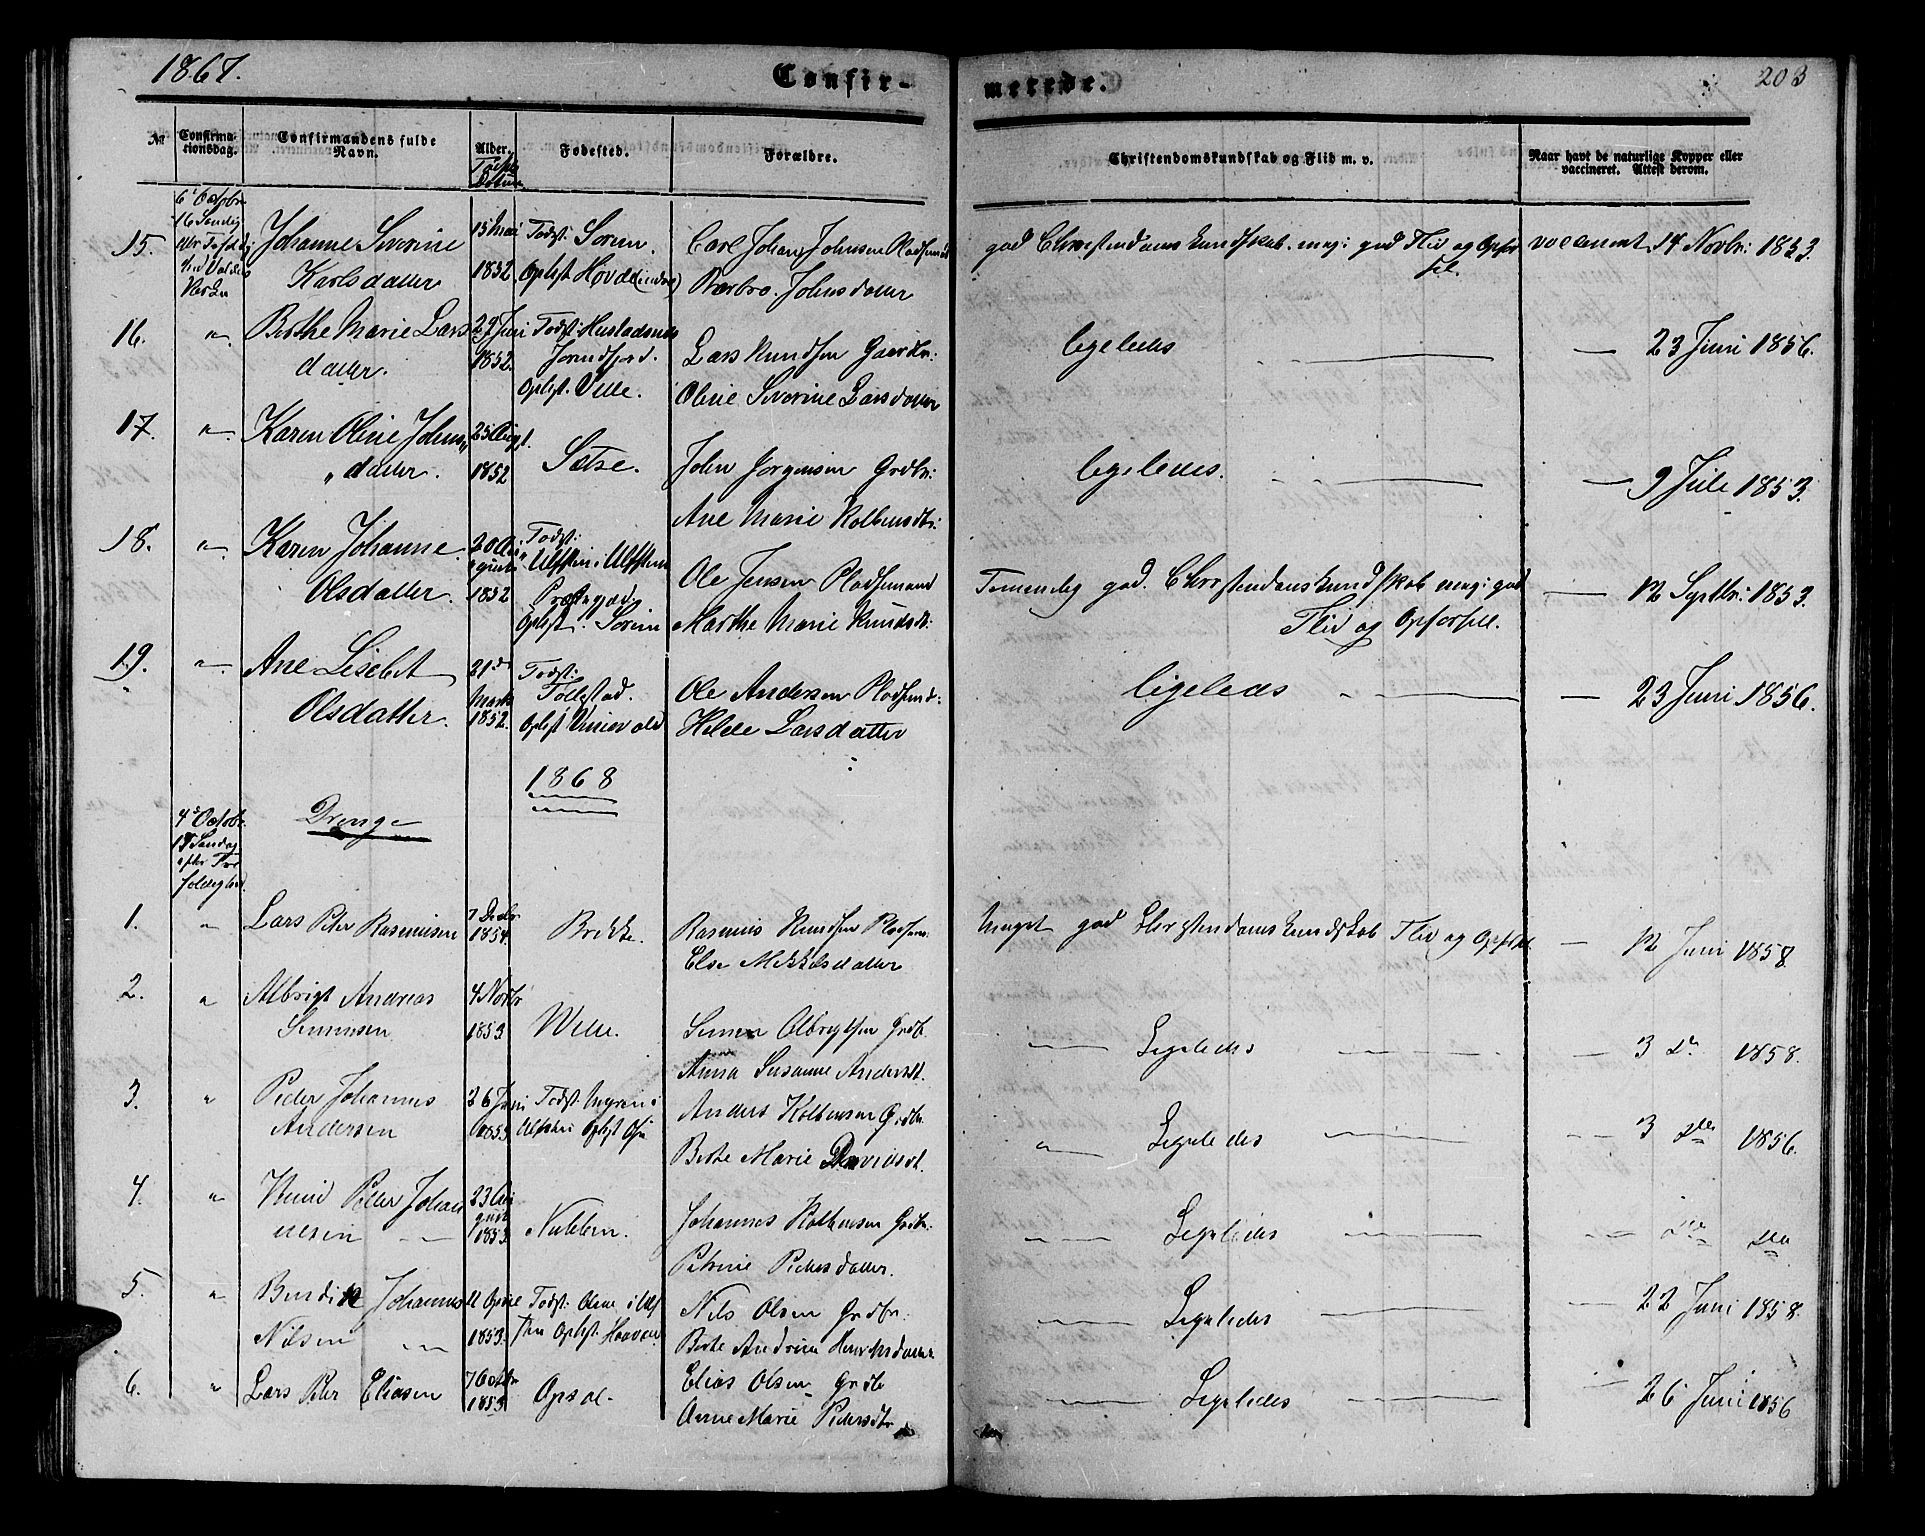 1867.
Confir-
merede.
203
№
Confirma-
tionsdag.
Confirmandens fulde
Navn.
Alder.
Fødested.
Forældre.
Christendomskundskab og Flid m. v.
Naar havt de naturlige Kopper eller
vaccineret. Attest derom.
6' Octobr
15.
Johanne Severine
Karlsdatter
15 Mai
1852
Fødst: Søren.
Oplgst Hovde (indre)
Carl Johan Johnsen Pladsmand
Barbro Johnsdatter
god Christendomskundskab. meg: god Flid og Opfør
sel.
vaccineret 14 Novbr: 1853.
16.
"
Berthe Marie Lars
datter.
29 Juni
1852.
Fødst: Hustadnæs
Jørundfjord.
Oplgst. Velle.
Lars Knudsen Gaardbr:
Oline Severine Larsdatter
ligeledes
23 Juni 1856.
17.
"
Karen Oline Johns
datter.
25 Augt.
1852
Sætre.
John Jørgensen Grdbr:
Ane Marie Kolbensdtr:
ligeledes.
9 Juli 1853.
18.
"
Karen Johanne
Olsdatter.
20 Au
gust
1852
Fødst:
Ulfsten i Ulfstens
Præstegjæd.
Oplgst. Søren
Ole Jensen Pladsmand
Marthe Marie Knudsdt:
Temmelig god Christendomskundskab meg: god
Flid og Opførsel.
12 Septbr: 1853.
19.
"
Ane Lisebet
Olsdatter.
21de
Marts
1852.
Fødst:
Follestad.
Oplgst Vinievold
Ole Andersen Pladsmd:
Hilde Larsdatter
ligeleds
23 Juni 1856.
1868
4de Octobr.
17 Søndag
efter Tre
foldighed.
Drenge
1.
"
Lars Peter Rasmussen
7 Decbr
1854.
Brekke.
Rasmus Knudsen Pladsm:
Else Mikkelsdatter
Meget god Christendomskundskab Flid og Opførsel
12 Juni 1858.
2.
"
Albrigt Andreas
Simonsen
4 Novbr
1853
Welle.
Simon Albrigtsen Grdb.
Anna Susanne Andersdt.
Ligeledes
3 do 1858.
3.
"
Peder Johannes
Andersen
26 Juni
1853
Fødst. Myren i
Ulfsten Oplgst Osen
Anders Kolbensen Grdbr.
Berte Marie Davidsdt.
Ligeledes
3 do 1856.
4.
"
Knud Peter Johan
nesen
23 Au
gust
1853.
Nubben.
Johannes Kolbensen Grdbr.
Petrine Pedersdatter.
Ligeledes
do do
5.
"
Bendik Johannes
Nilsen
11 April
1853.
Fødst: Osnes i Ulf
sten Oplgst. Haaven
Nils Olsen Grdbr.
Berte Andrine Henriksdatter
Ligeledes
22 Juni 1858.
6.
"
Lars Peter Eliasen
7 Octbr
1853
Opsal.
Elias Olsen Grdb
Anne Marie Pedersdtr
Ligeledes
26 Juni 1856